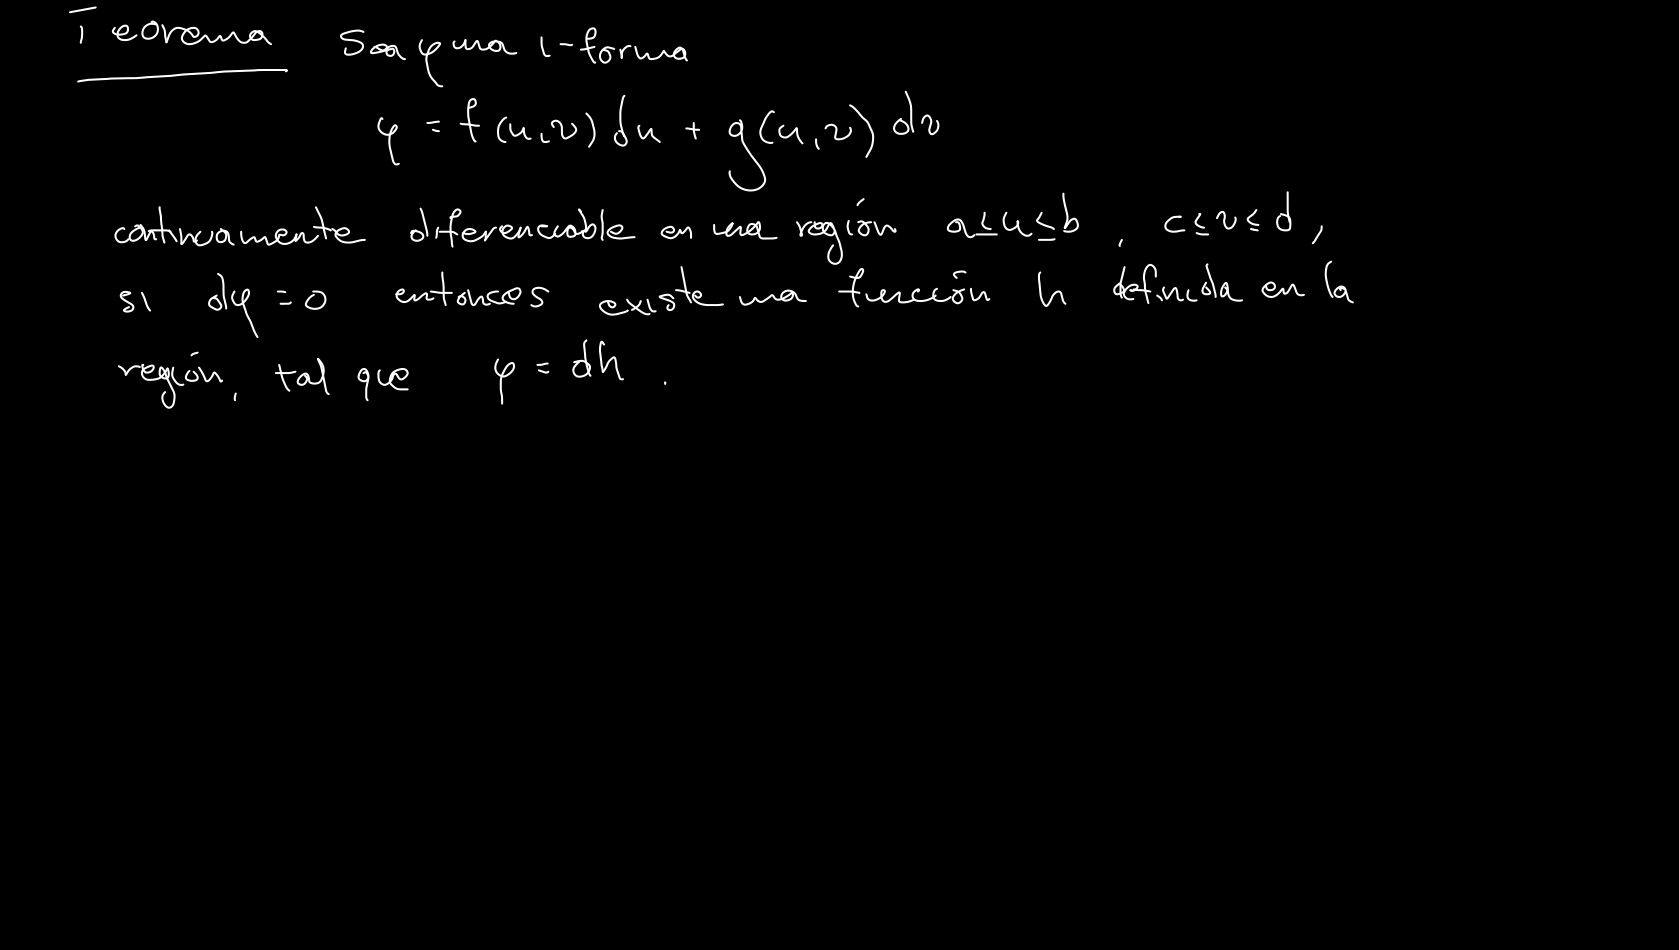 Teorema Sea φ una 1-forma
φ = f(u,v) du + g(u,v) dv
continuamente diferenciable en una región a≤u≤b, c≤v≤d,
si dφ = 0 entonces existe una función h definida en la
región, tal que φ = dh.